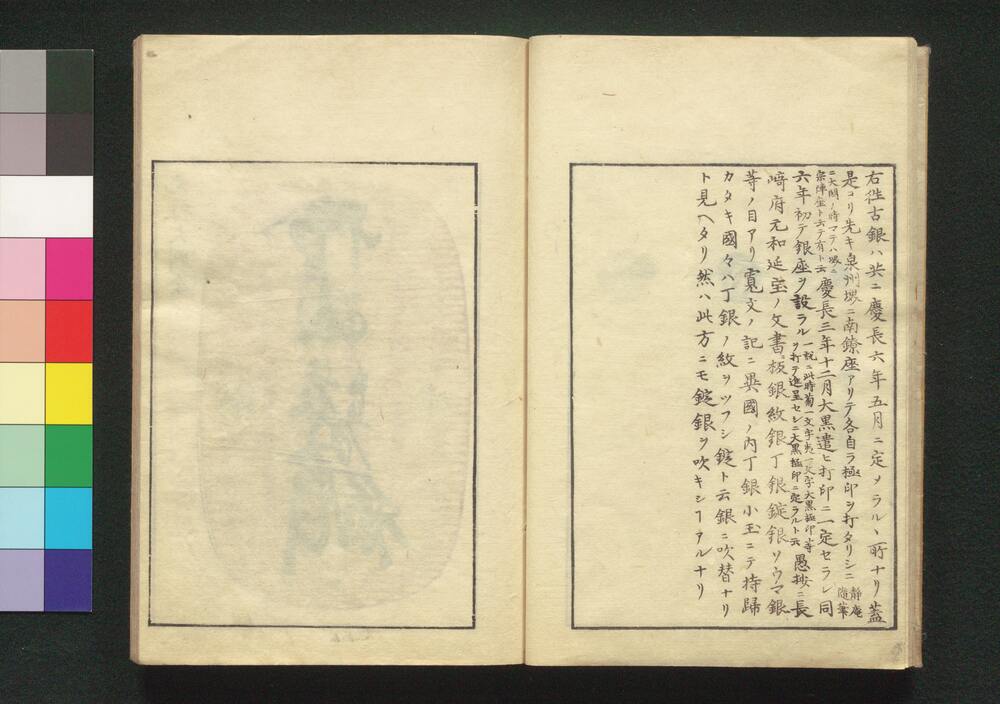 右往古銀ハ共ニ慶長六年五月ニ定メラルヽ所ナリ蓋
是ヨリ先キ泉州堺ニ南鐐座アリテ各自ラ極印ヲ打タリシニ静庵随筆
ニ大閤ノ時マテハ堺ニ
云テ有ト云
慶長三年十二月大黒遣ヒ打印ニ一定セラレ同
六年初テ銀座ヲ設ラル
一説ニ此時菊一文字夷一文字大黒極印等
ヲ打テ進呈セシニ大黒極印ニ定ラルト云
愚按ニ長
崎府元和延宝ノ文書板銀紋銀丁銀錠銀ソウマ銀
等ノ目アリ寛文ノ記ニ異國ノ内丁銀小玉ニテ持歸
カタキ國々ハ丁銀ノ紋ヲツフシ錠ト云銀ニ吹替ナリ
ト見ヘタリ然ハ此方ニモ錠銀ヲ吹キシヿアルナリ